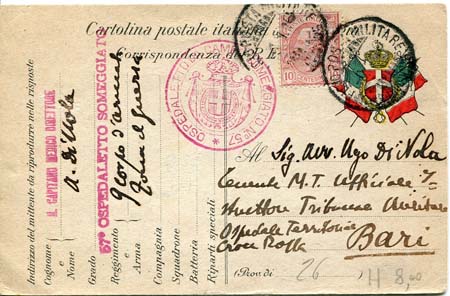 Cartolina postale italiana
Corrispondenza del R. E
10 CENT
POSTA MILITARE
MILITARE
OSPEDALETTO SOMEGGIATO N° 57
Al Sig. Avv. Ugo Di Nola
Tenente M.T. Ufficiale
Istruttore Tribunale Militare
Ospedale Territoriale
Croce Rossa
Bari
(Prov. di
26
H 8,00
Indirizzo del mittente da riprodurre nelle risposte
Cognome e Nome
IL CAPITANO MEDICO DIRETTORE
A. Di Nola
Grado
Reggimento
57° OSPEDALETTO SOMEGGIATO
Arma
Corpo d'armata
Compagnia
Zona di guerra
Squadrone
Batteria
Riparti speciali